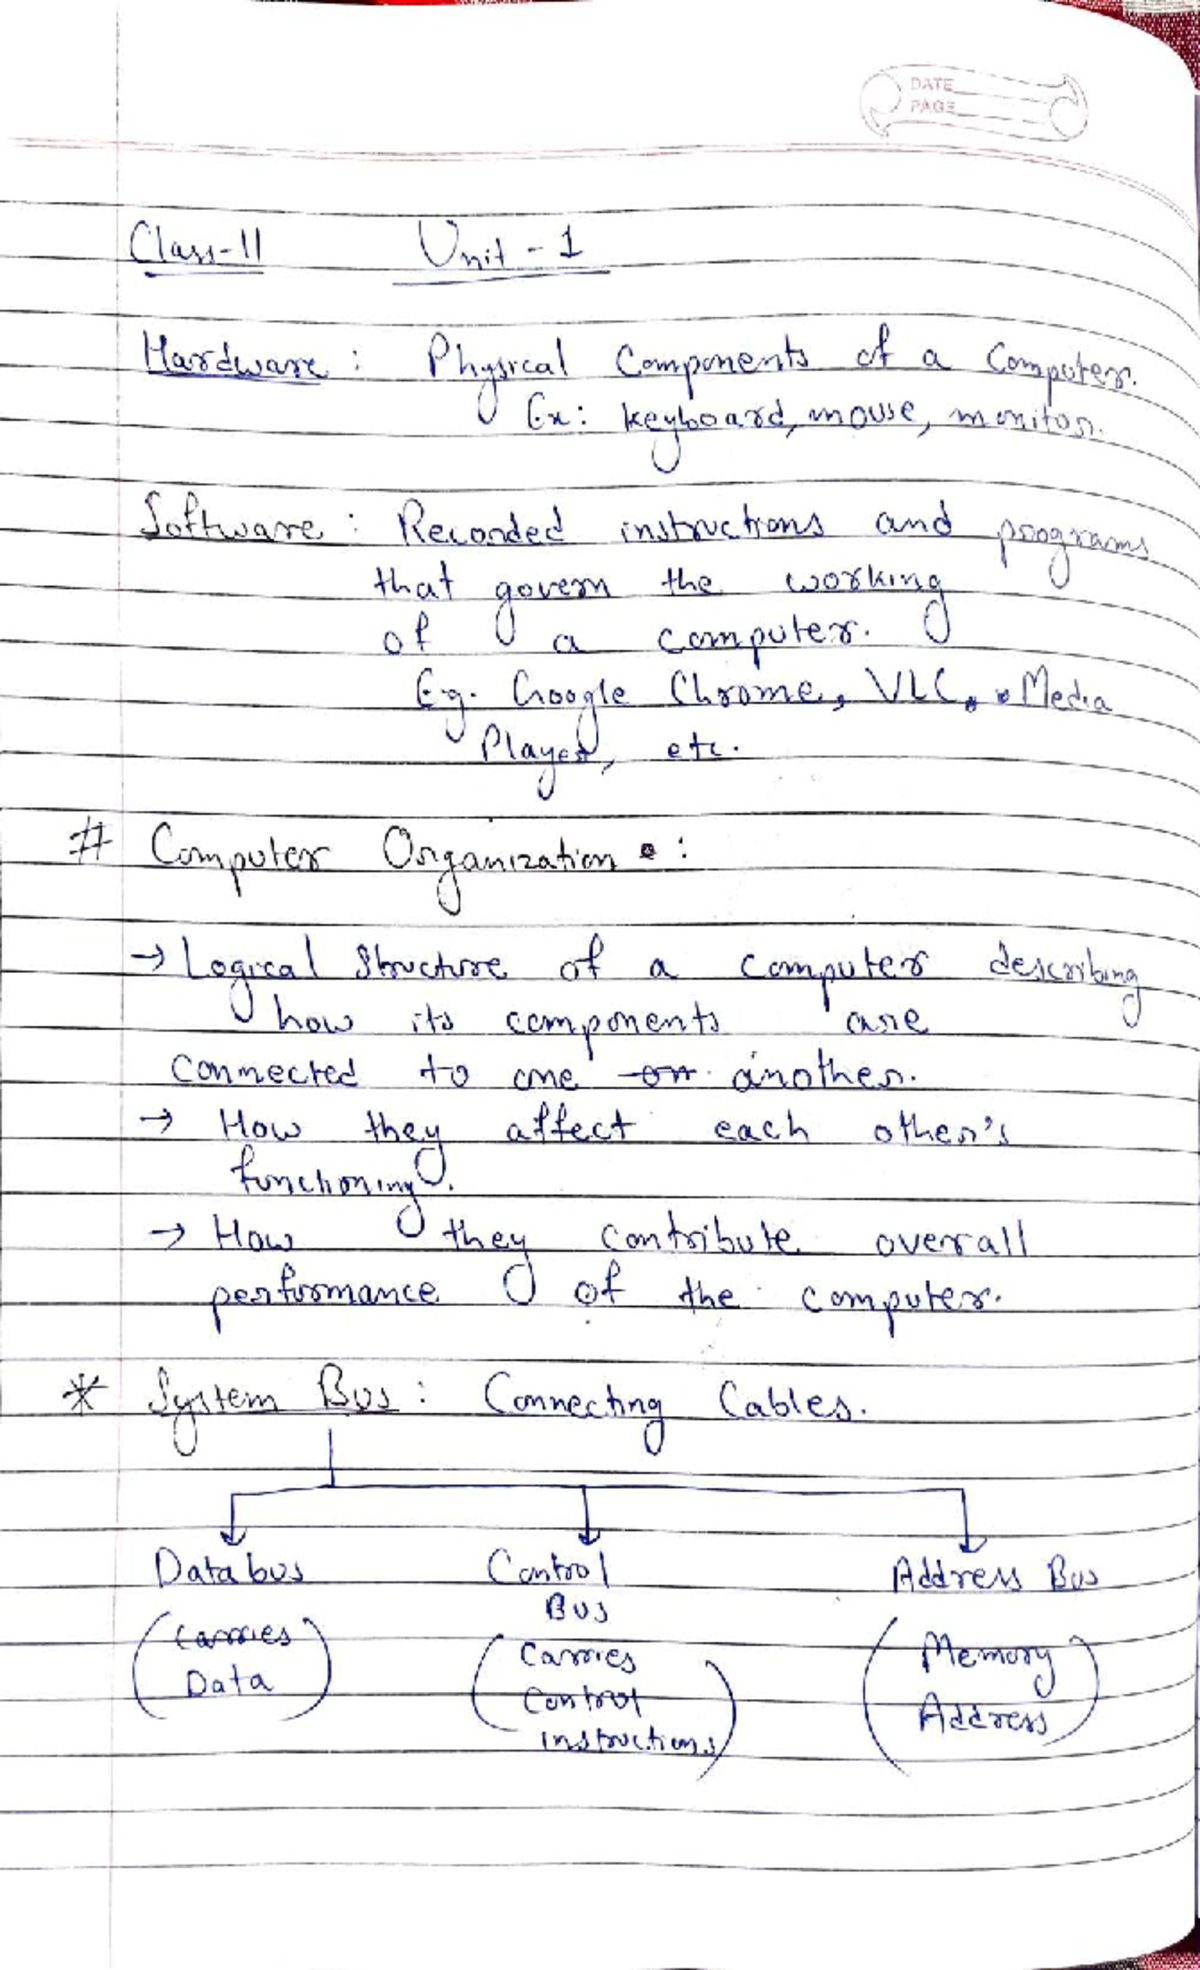 DATE
PAGE
Class-11 Unit - 1
Hardware : Physical Components of a Computer.
Ex: keyboard, mouse, monitor.
Software : Recorded instructions and programs
that govern the working
of a computer.
Eg. Google Chrome, VLC, Media
Player, etc.
# Computer Organization :
→ Logical Structure of a computer describing
how its components are
connected to one or another.
→ How they affect each other's
functioning.
→ How they contribute overall
performance of the computer.
* System Bus : Connecting Cables.
Databus Control Address Bus
Bus
(Carries Data) (Carries Control instructions) (Memory Address)